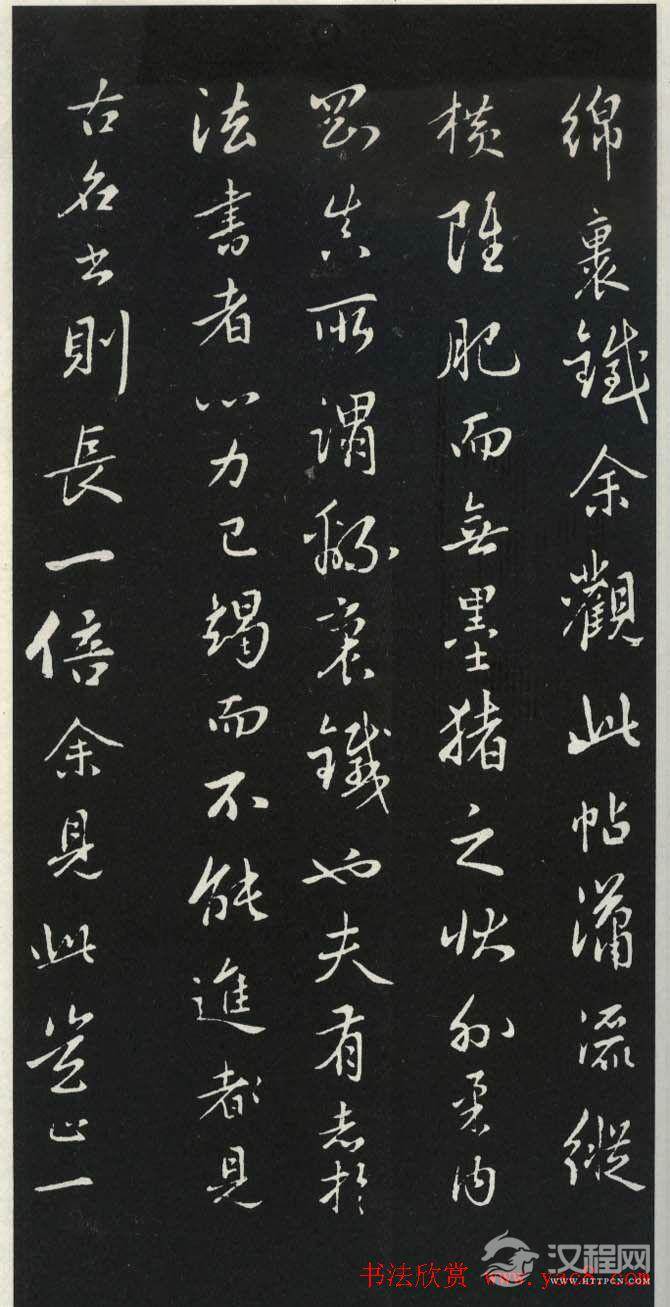 綿裹鐵余觀此帖瀟灑縱
橫雖肥而無墨猪之狀外柔内
剛真所謂綿裹鐵也夫有志於
法書者心力已竭而不能進都見
古名書則長一倍余見此豈止一
汉程网
WWW.HTTPCN.COM
书法欣赏